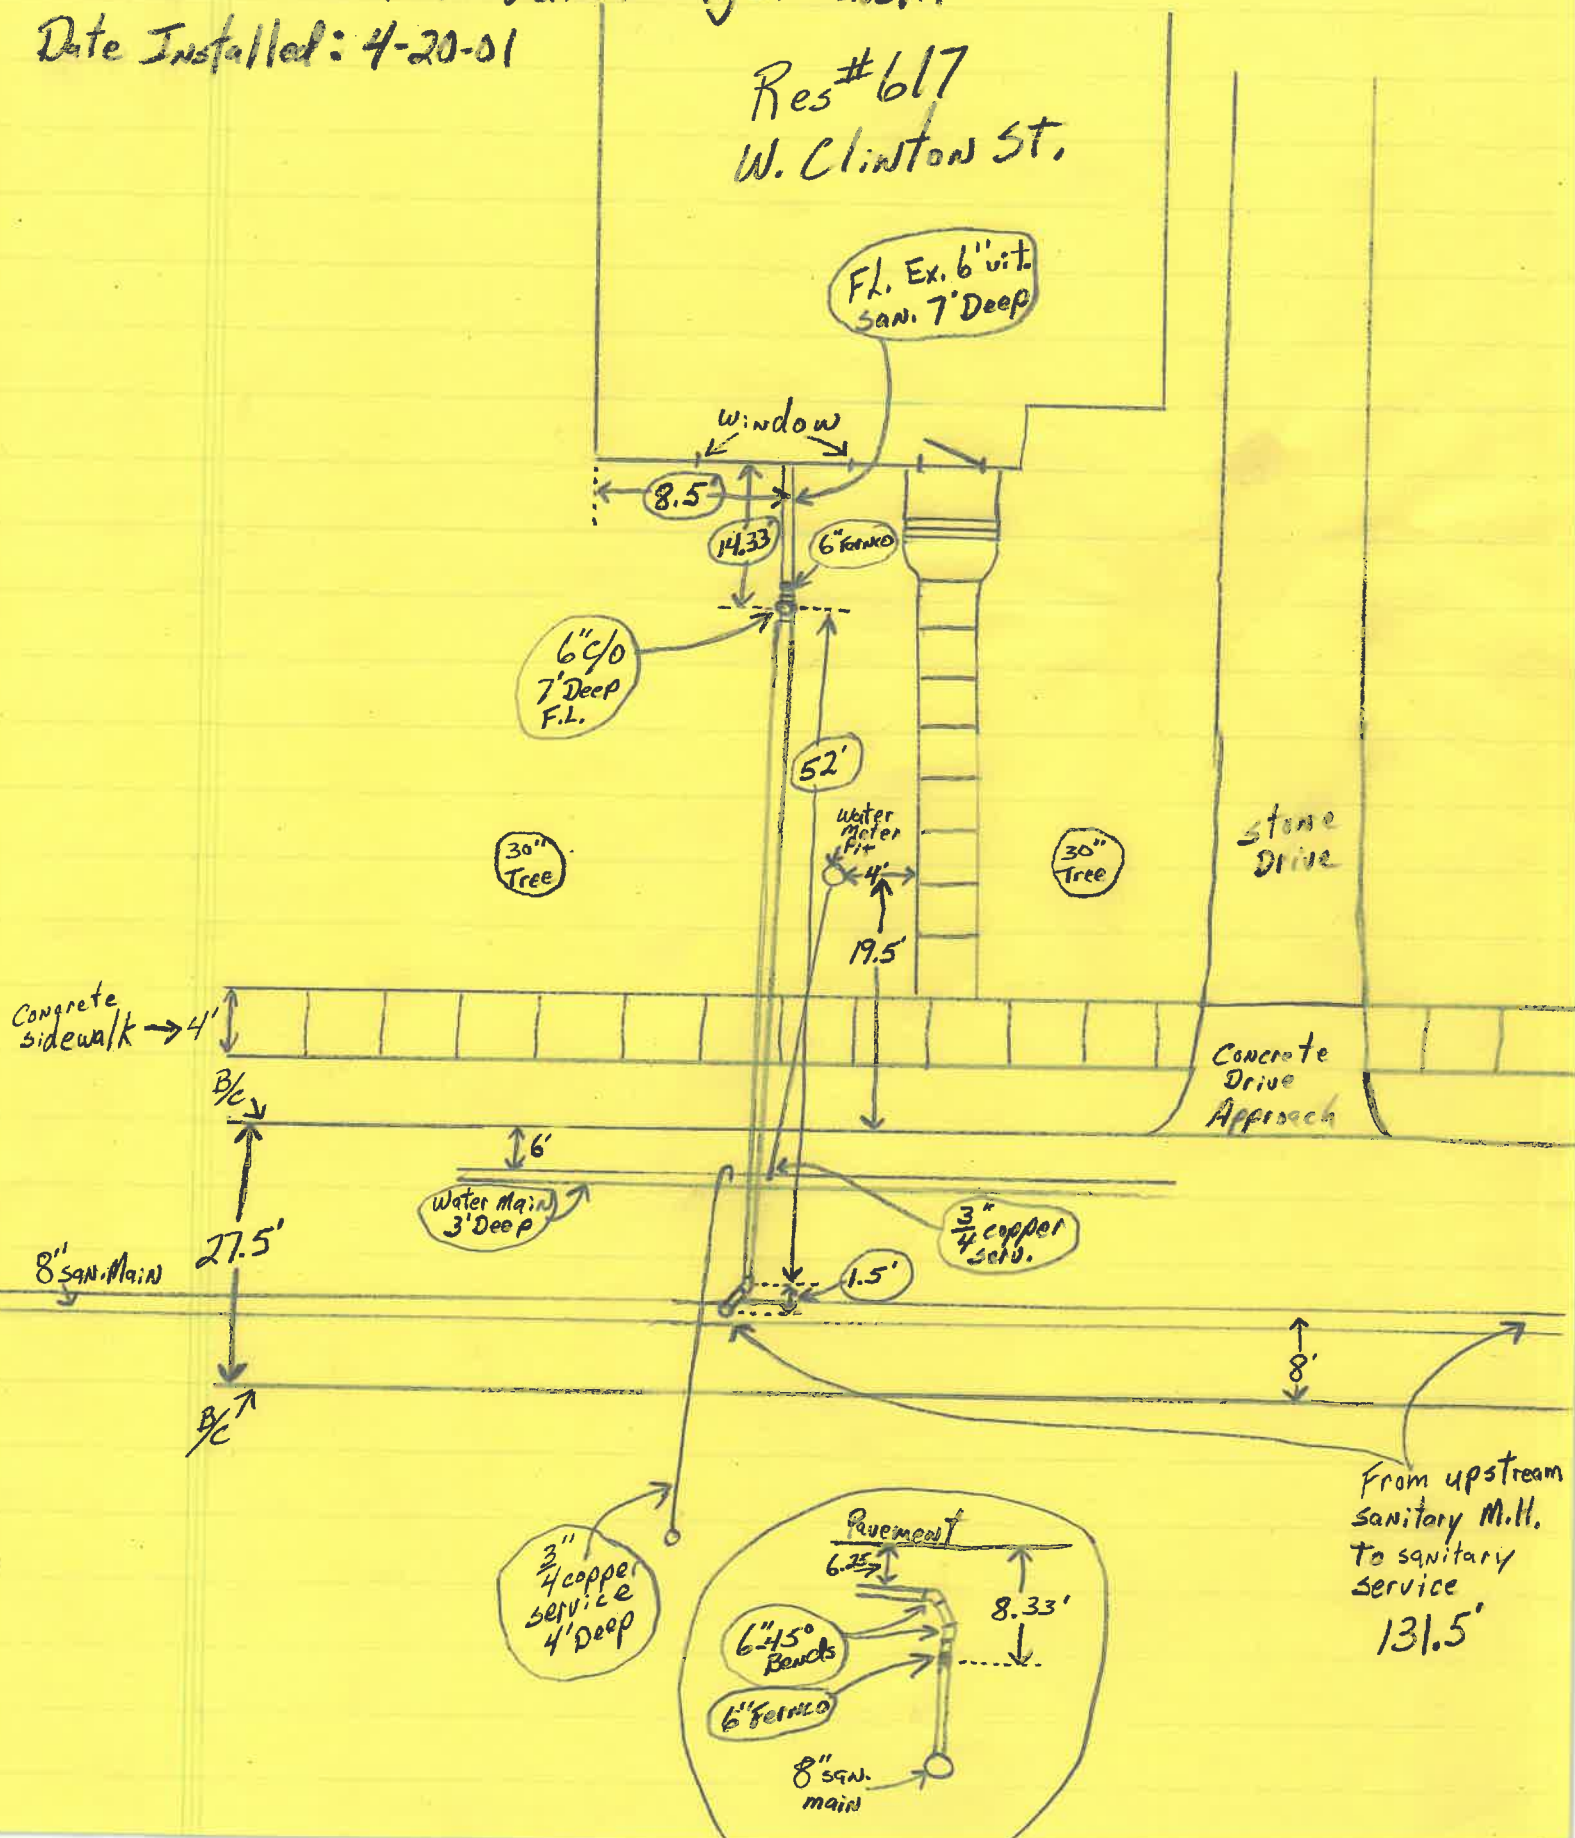 Date Installed: 4-20-01
Res #617
W. Clinton St.
FL. Ex. 6" vit.
san. 7' Deep
window
8.5'
14.33'
6" Fernco
6" c/o
7' Deep
F.L.
52'
Water
Meter
Pit
4'
30"
Tree
30"
Tree
Stone
Drive
19.5'
Concrete
sidewalk → 4'
Concrete
Drive
Approach
B/C
6'
Water Main
3' Deep
3/4" copper
serv.
27.5'
8" san. Main
1.5'
8'
B/C
From upstream
sanitary M.H.
To sanitary
service
131.5'
3/4" copper
service
4' Deep
Pavement
6.25'
8.33'
6"-45°
Bends
6" Fernco
8" san.
main